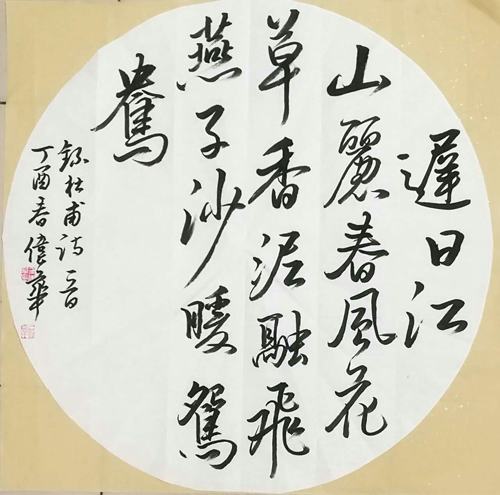 遲日江
山麗春風花
草香泥融飛
燕子沙暖鴛
鴦
錄杜甫詩一首
丁酉春偉華